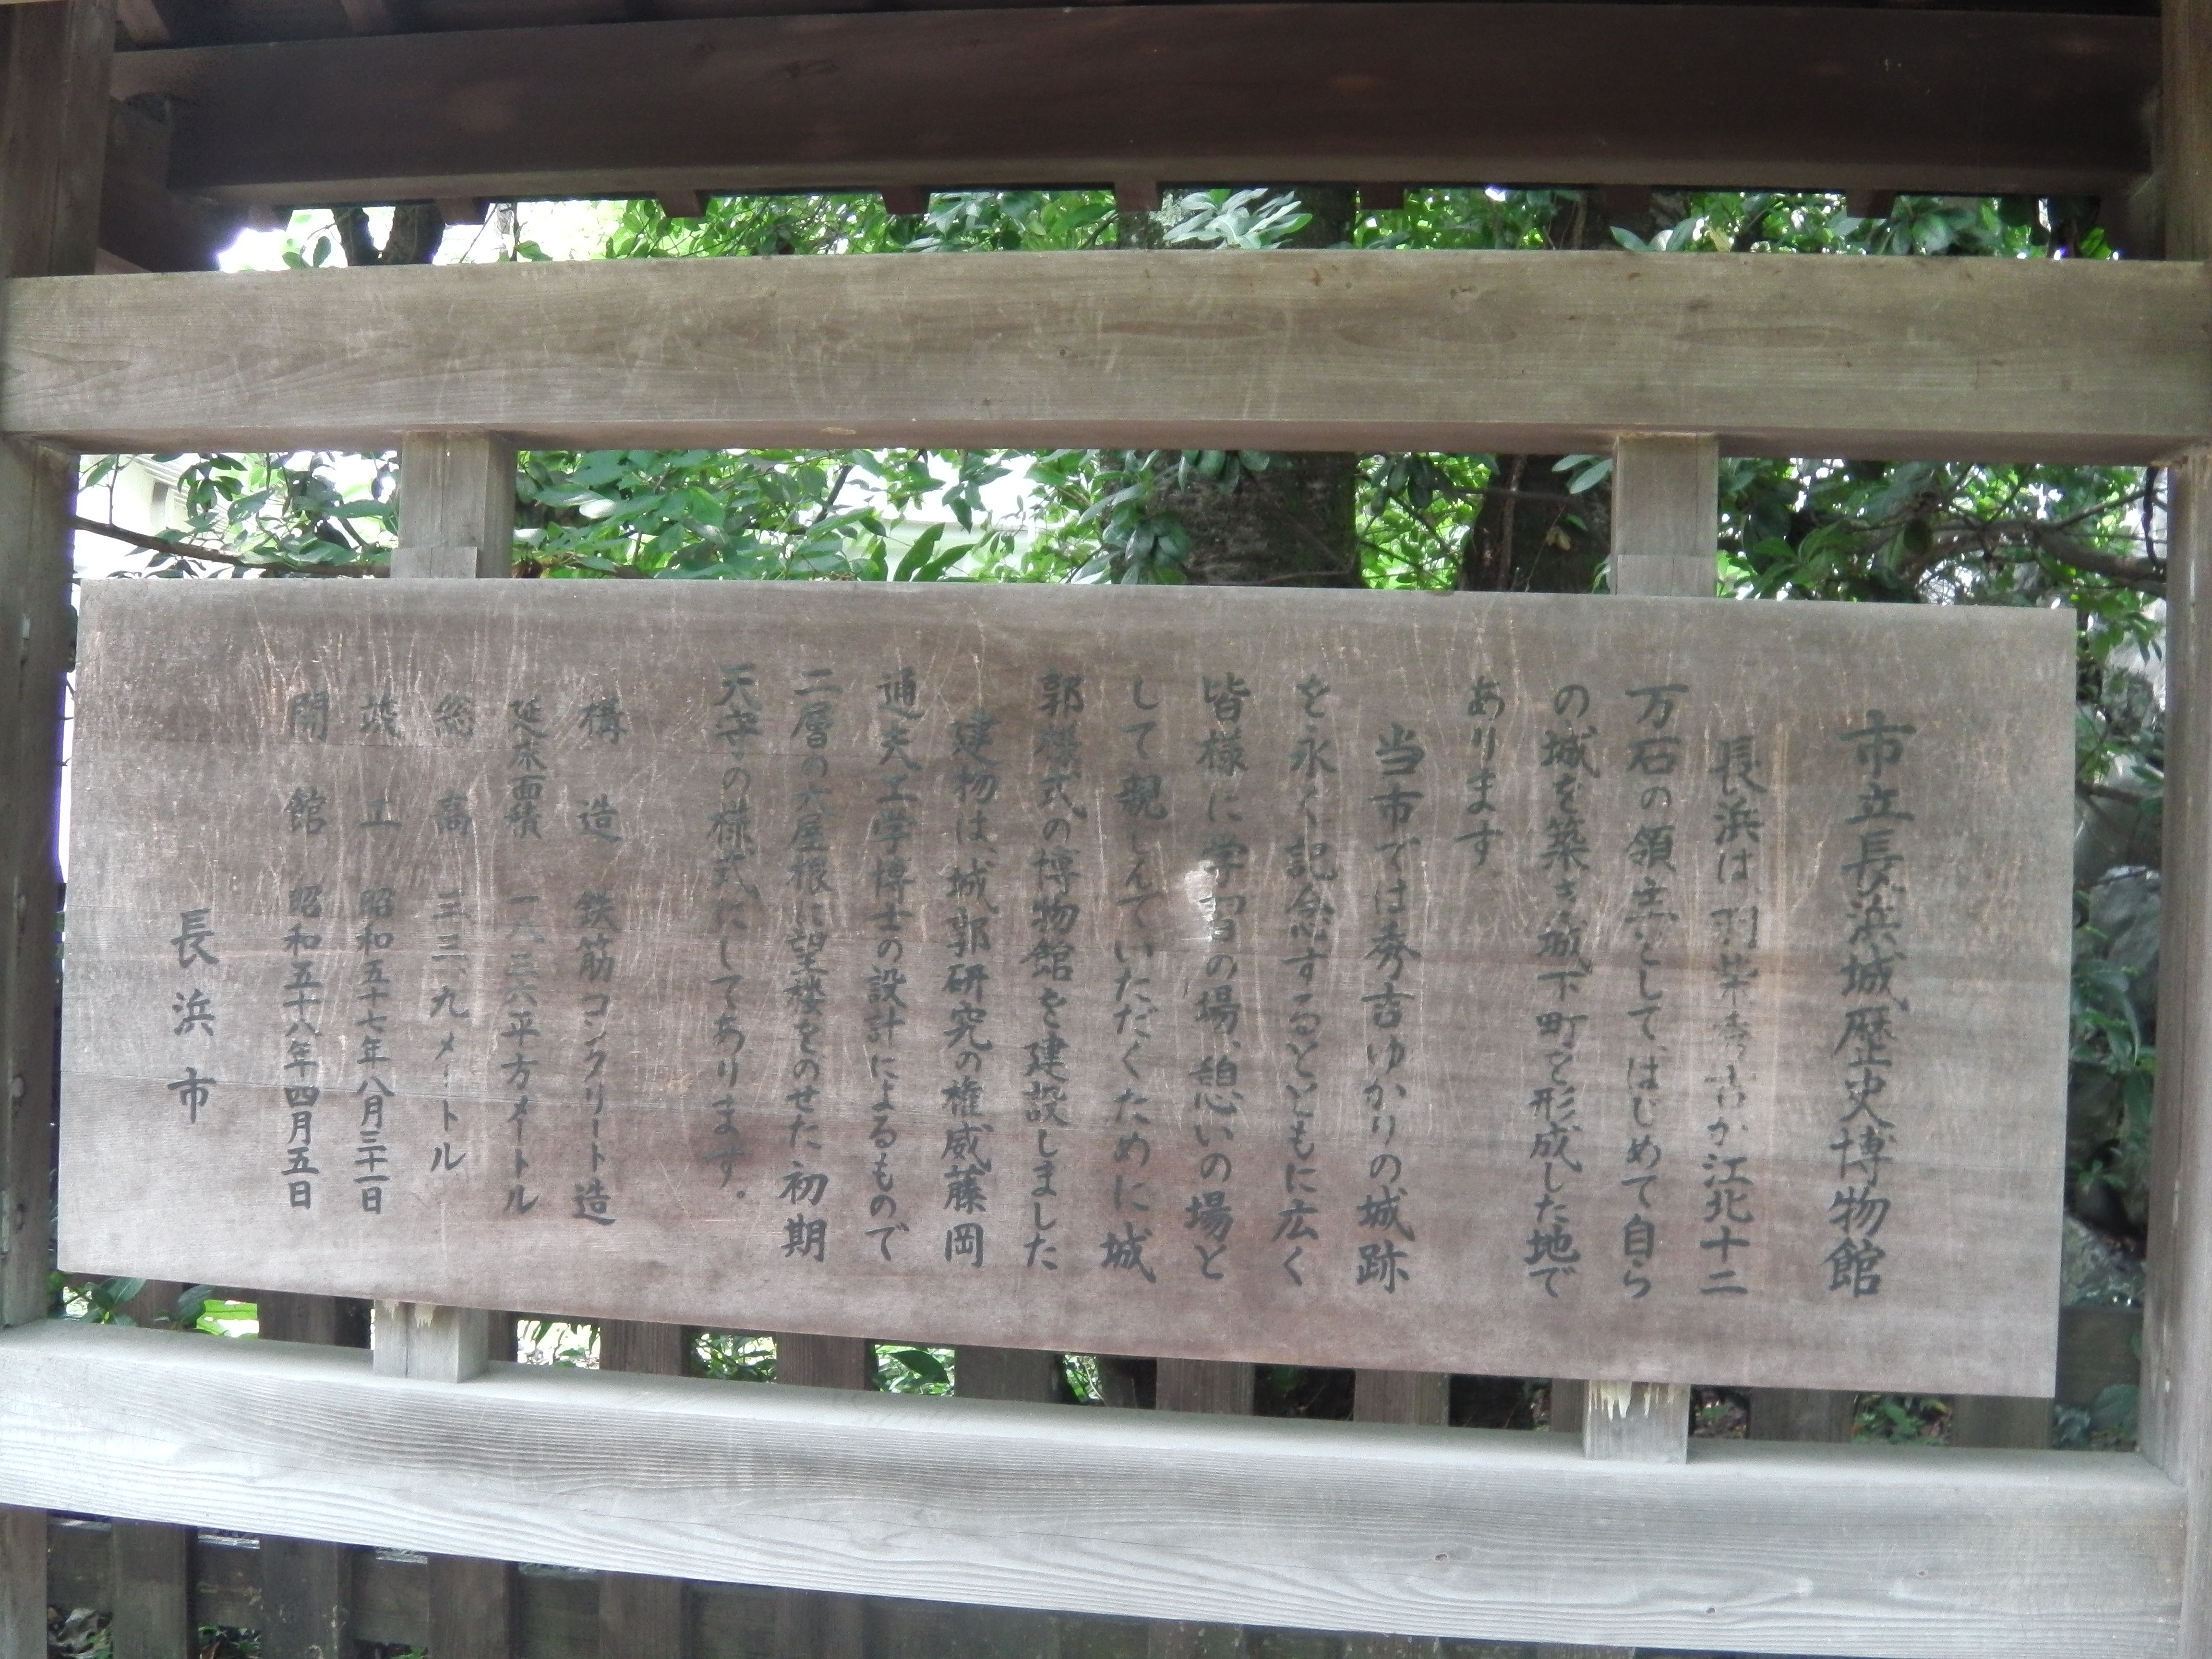 市立長浜城歴史博物館
長浜は、羽柴秀吉が江北十二
万石の領主として、はじめて自ら
の城を築き、城下町を形成した地で
あります。
当市では秀吉ゆかりの城跡
を永く記念するとともに広く
皆様に学習の場、憩いの場と
して親しんでいただくために城
郭様式の博物館を建設しました
建物は、城郭研究の権威藤岡
通夫工学博士の設計によるもので
二層の大屋根に望楼をのせた初期
天守の様式にしてあります。
構造 鉄筋コンクリート造
延床面積 一八三六平方メートル
総高 三三、九メートル
竣工 昭和五十七年八月三十一日
開館 昭和五十八年四月五日
長浜市